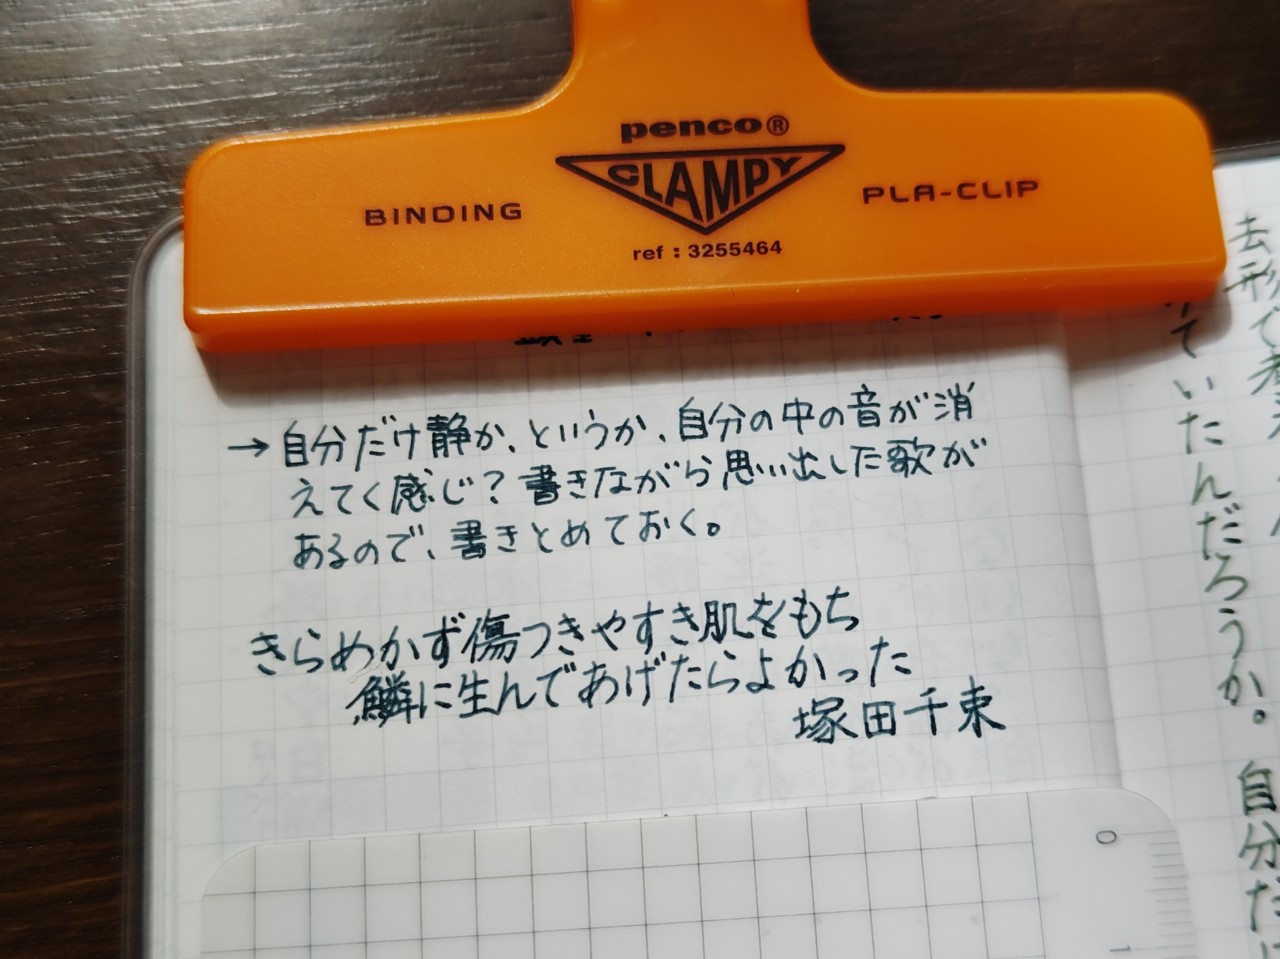 penco®
CLAMPY
BINDING
PLA-CLIP
ref : 3255464
→自分だけ静か、というか、自分の中の音が消
えてく感じ？書きながら思い出した歌が
あるので、書きとめておく。
きらめかず傷つきやすき肌をもち
鱗に生んであげたらよかった
塚田千束
ていたんだろうか。
自分だけ
0
1